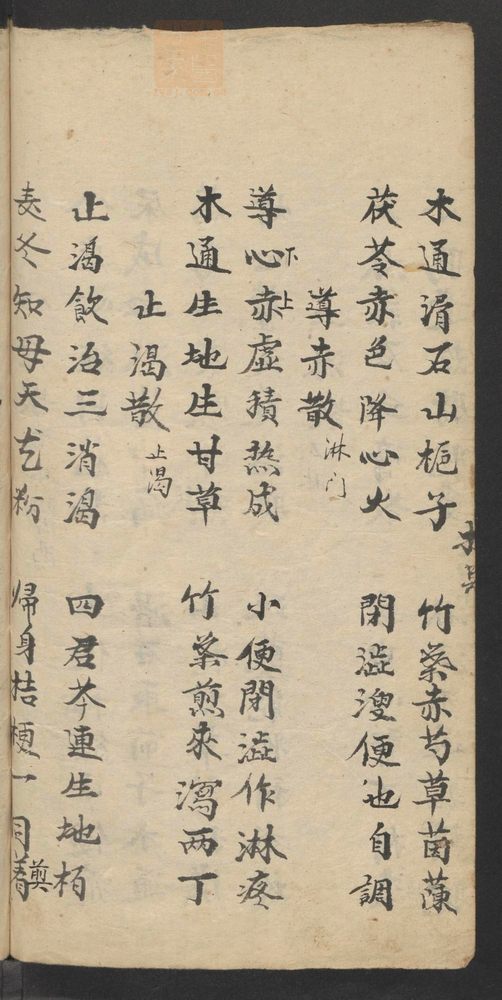 木通滑石山栀子　竹葉赤芍草茵蔯
茯苓赤色降心火　閉澁溲便也自調
導赤散　淋门
導心下赤上虛積热成　小便閉澁作淋疼
木通生地生甘草　竹葉煎來瀉两丁
止渴散　止渴
止渴飲治三消渴　四君芩連生地栢
麦冬知母天花粉　帰身桔梗一同煎